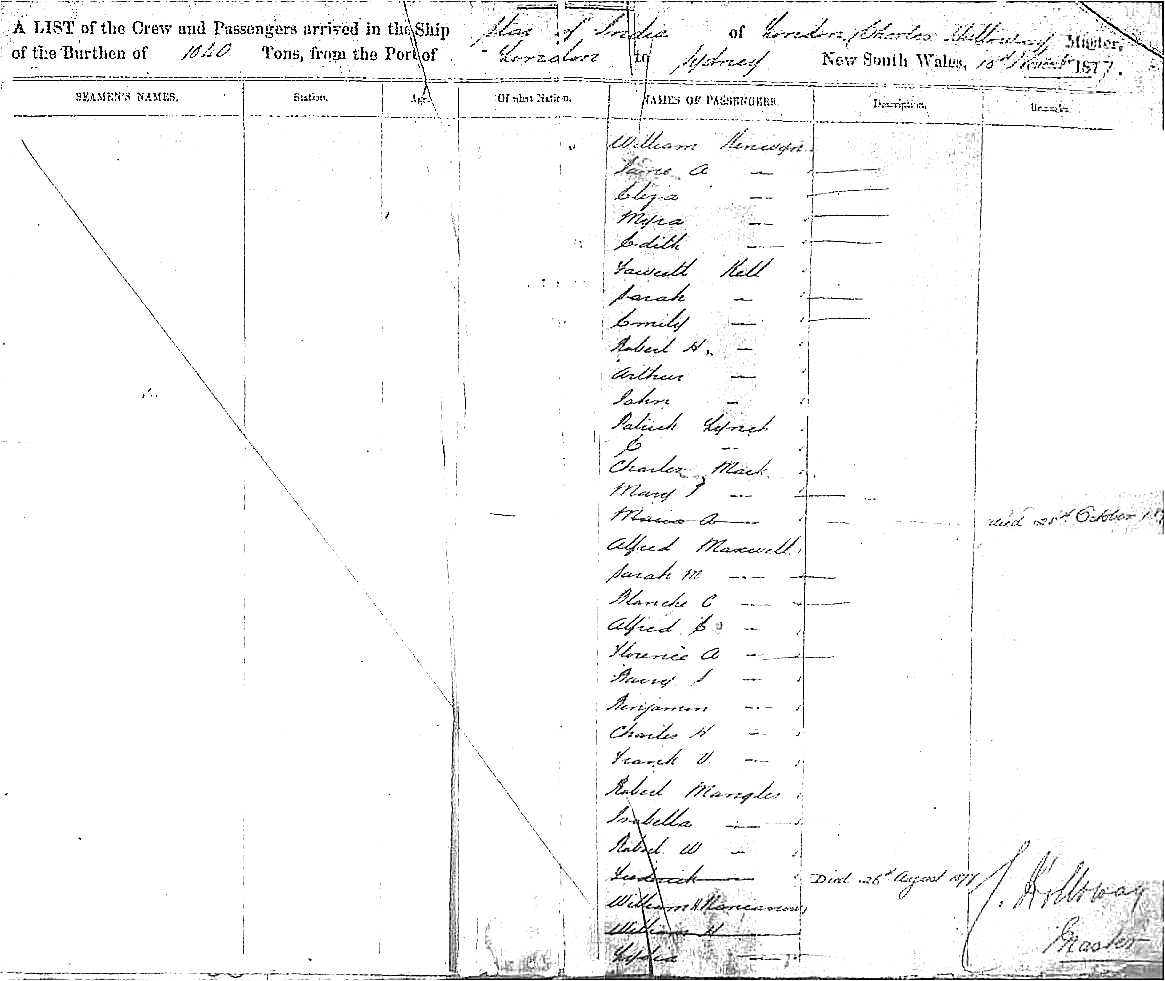 A LIST of the Crew and Passengers arrived in the Ship Star of India of London, Charles Holloway Master,
of the Burthen of 1040 Tons, from the Port of London to Sydney New South Wales, 10th November 1877.
SEAMEN'S NAMES. Station. Age. Of what Nation. NAMES OF PASSENGERS. Description. Remarks
William Kenwyn
A —
Eliza —
Myra —
Edith —
Fawcett Kell
Sarah —
Emily —
Robert H. —
Arthur —
John —
Patrick Lynch
C —
Charles Mack
Mary —
A — died 25th October
Alfred Maxwell
Sarah M —
Blanche C —
Alfred —
Florence A —
Harry —
Benjamin —
Charles H —
Frank V. —
Robert Mangles
Isabella —
Robert W —
Frederick — Died 26th August 1877
William H
William H
Lydia —
C. Holloway
Master